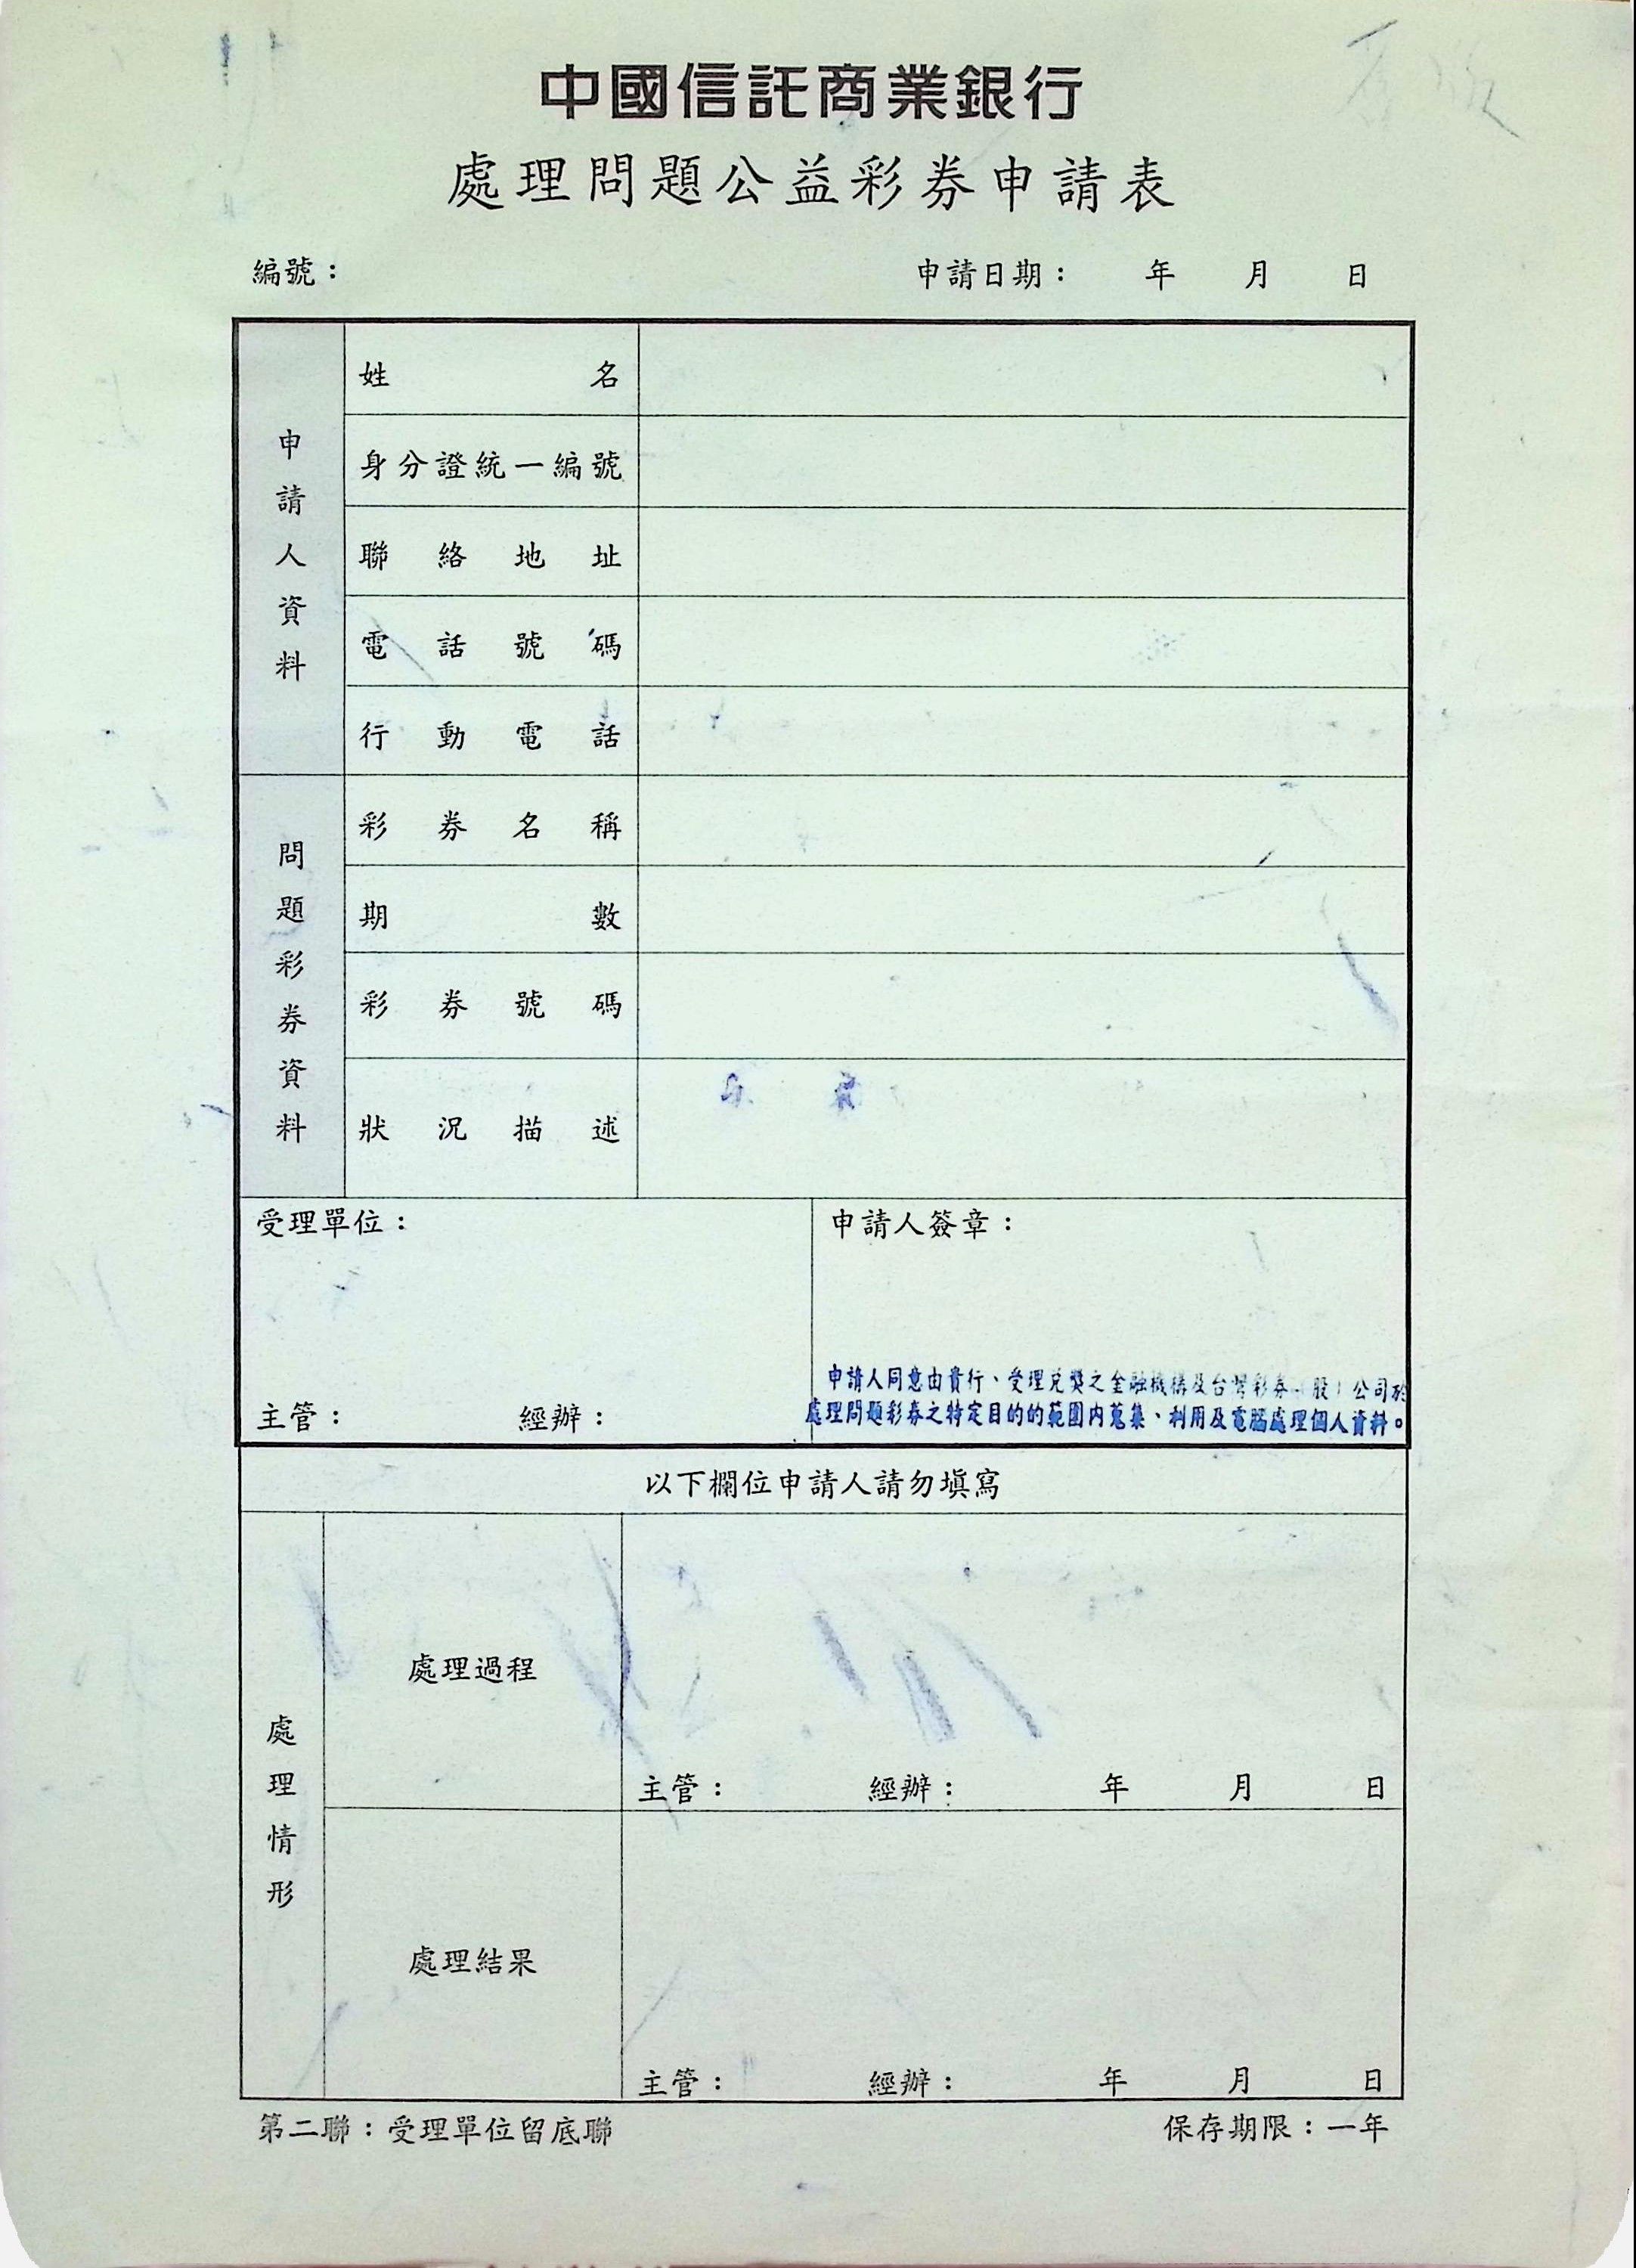 中國信託商業銀行
處理問題公益彩券申請表
編號：　申請日期：　年　月　日
申請人資料
姓名
身分證統一編號
聯絡地址
電話號碼
行動電話
問題彩券資料
彩券名稱
期數
彩券號碼
狀況描述
受理單位：
主管：　經辦：
申請人簽章：
申請人同意由貴行、受理兌獎之金融機構及台灣彩券（股）公司於
處理問題彩券之特定目的的範圍內蒐集、利用及電腦處理個人資料。
以下欄位申請人請勿填寫
處理情形
處理過程
主管：　經辦：　年　月　日
處理結果
主管：　經辦：　年　月　日
第二聯：受理單位留底聯　保存期限：一年